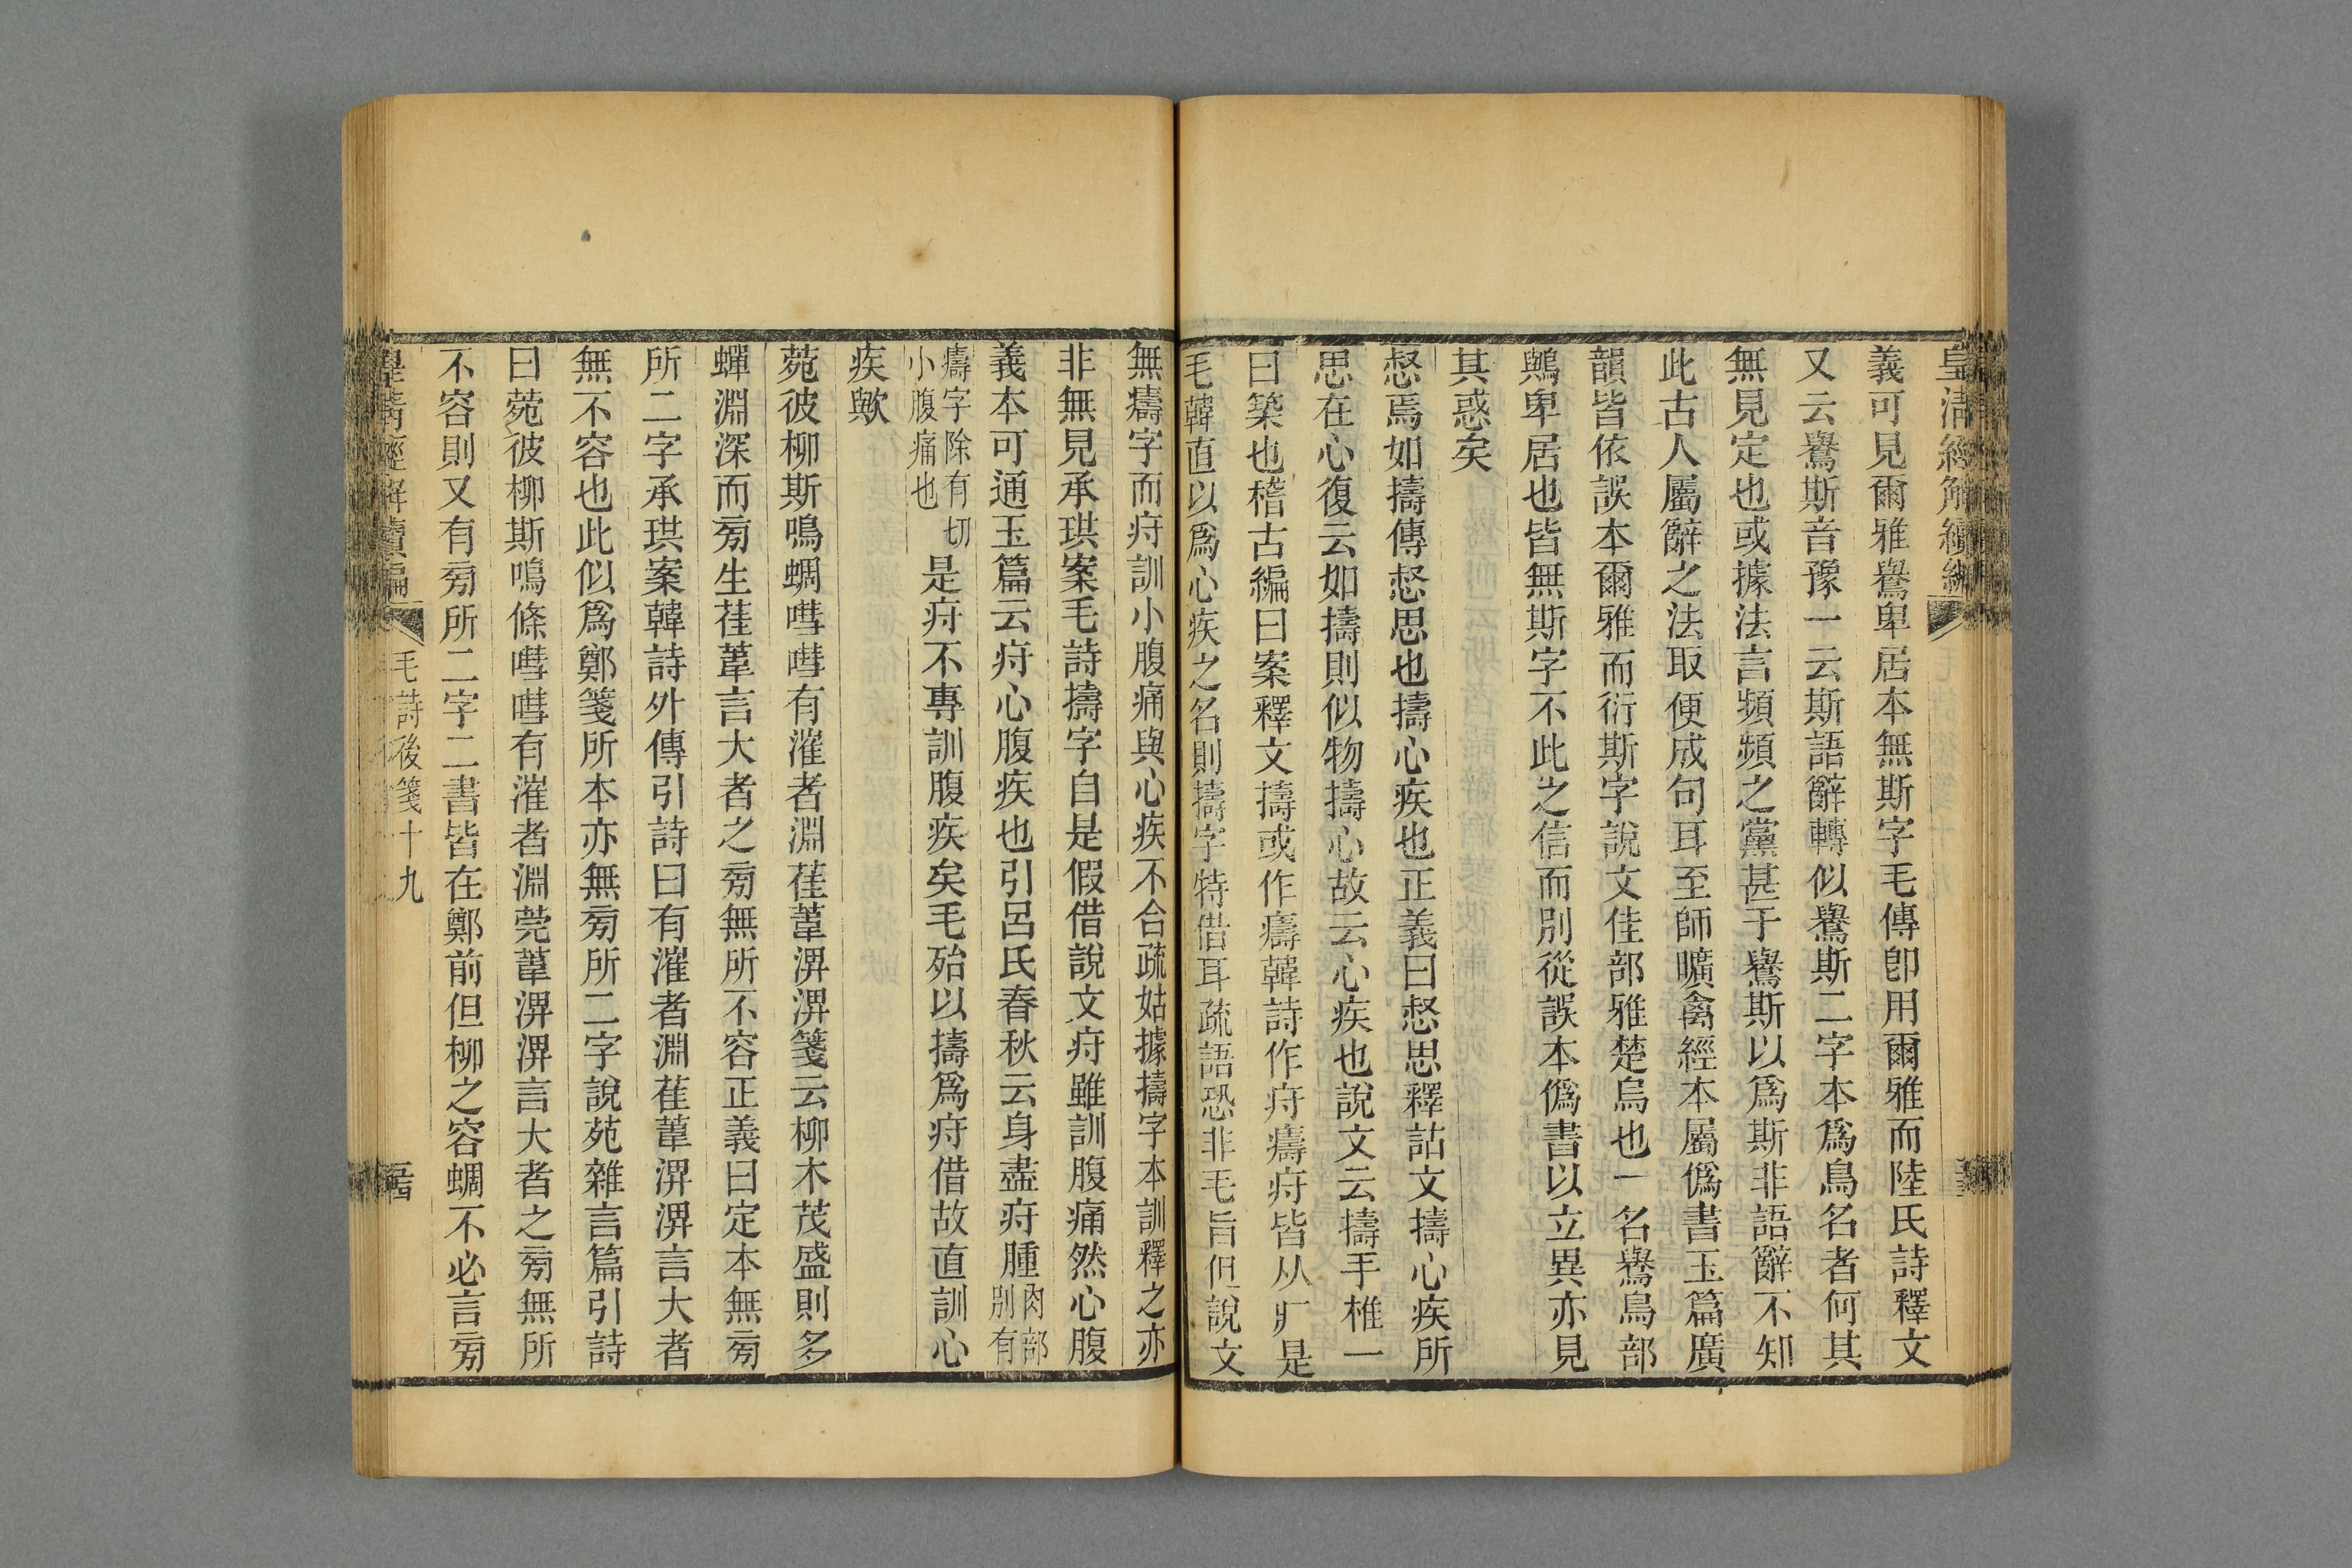 皇清經解續編
義可見爾雅鸒卑居本無斯字毛傳卽用爾雅而陸氏詩釋文
又云鸒斯音豫一云斯語辭轉似鸒斯二字本爲鳥名者何其
無見定也或據法言頻頻之黨甚于鸒斯以爲斯非語辭不知
此古人屬辭之法取便成句耳至師曠禽經本屬僞書玉篇廣
韻皆依誤本爾雅而衍斯字說文隹部雅楚烏也一名鸒鳥部
鸒卑居也皆無斯字不此之信而別從誤本僞書以立異亦見
其惑矣
惄焉如擣傳惄思也擣心疾也正義曰惄思釋詁文擣心疾所
思在心復云如擣則似物擣心故云心疾也說文云擣手椎一
曰築也稽古編曰案釋文擣或作癙韓詩作疛癙疛皆从疒是
毛韓直以爲心疾之名則擣字特借耳疏語恐非毛旨但說文
無癙字而疛訓小腹痛與心疾不合疏姑據擣字本訓釋之亦
非無見承珙案毛詩擣字自是假借說文疛雖訓腹痛然心腹
義本可通玉篇云疛心腹疾也引呂氏春秋云身盡疛腫肉部
別有
癙字除有切
小腹痛也
是疛不專訓腹疾矣毛殆以擣爲疛借故直訓心
疾歟
菀彼柳斯鳴蜩嘒嘒有漼者淵萑葦淠淠箋云柳木茂盛則多
蟬淵深而旁生萑葦言大者之旁無所不容正義曰定本無旁
所二字承珙案韓詩外傳引詩曰有漼者淵萑葦淠淠言大者
無不容也此似爲鄭箋所本亦無旁所二字說苑雜言篇引詩
曰菀彼柳斯鳴蜩嘒嘒有漼者淵莞葦淠淠言大者之旁無所
不容則又有旁所二字二書皆在鄭前但柳之容蜩不必言旁
皇清經解續編
毛詩後箋十九